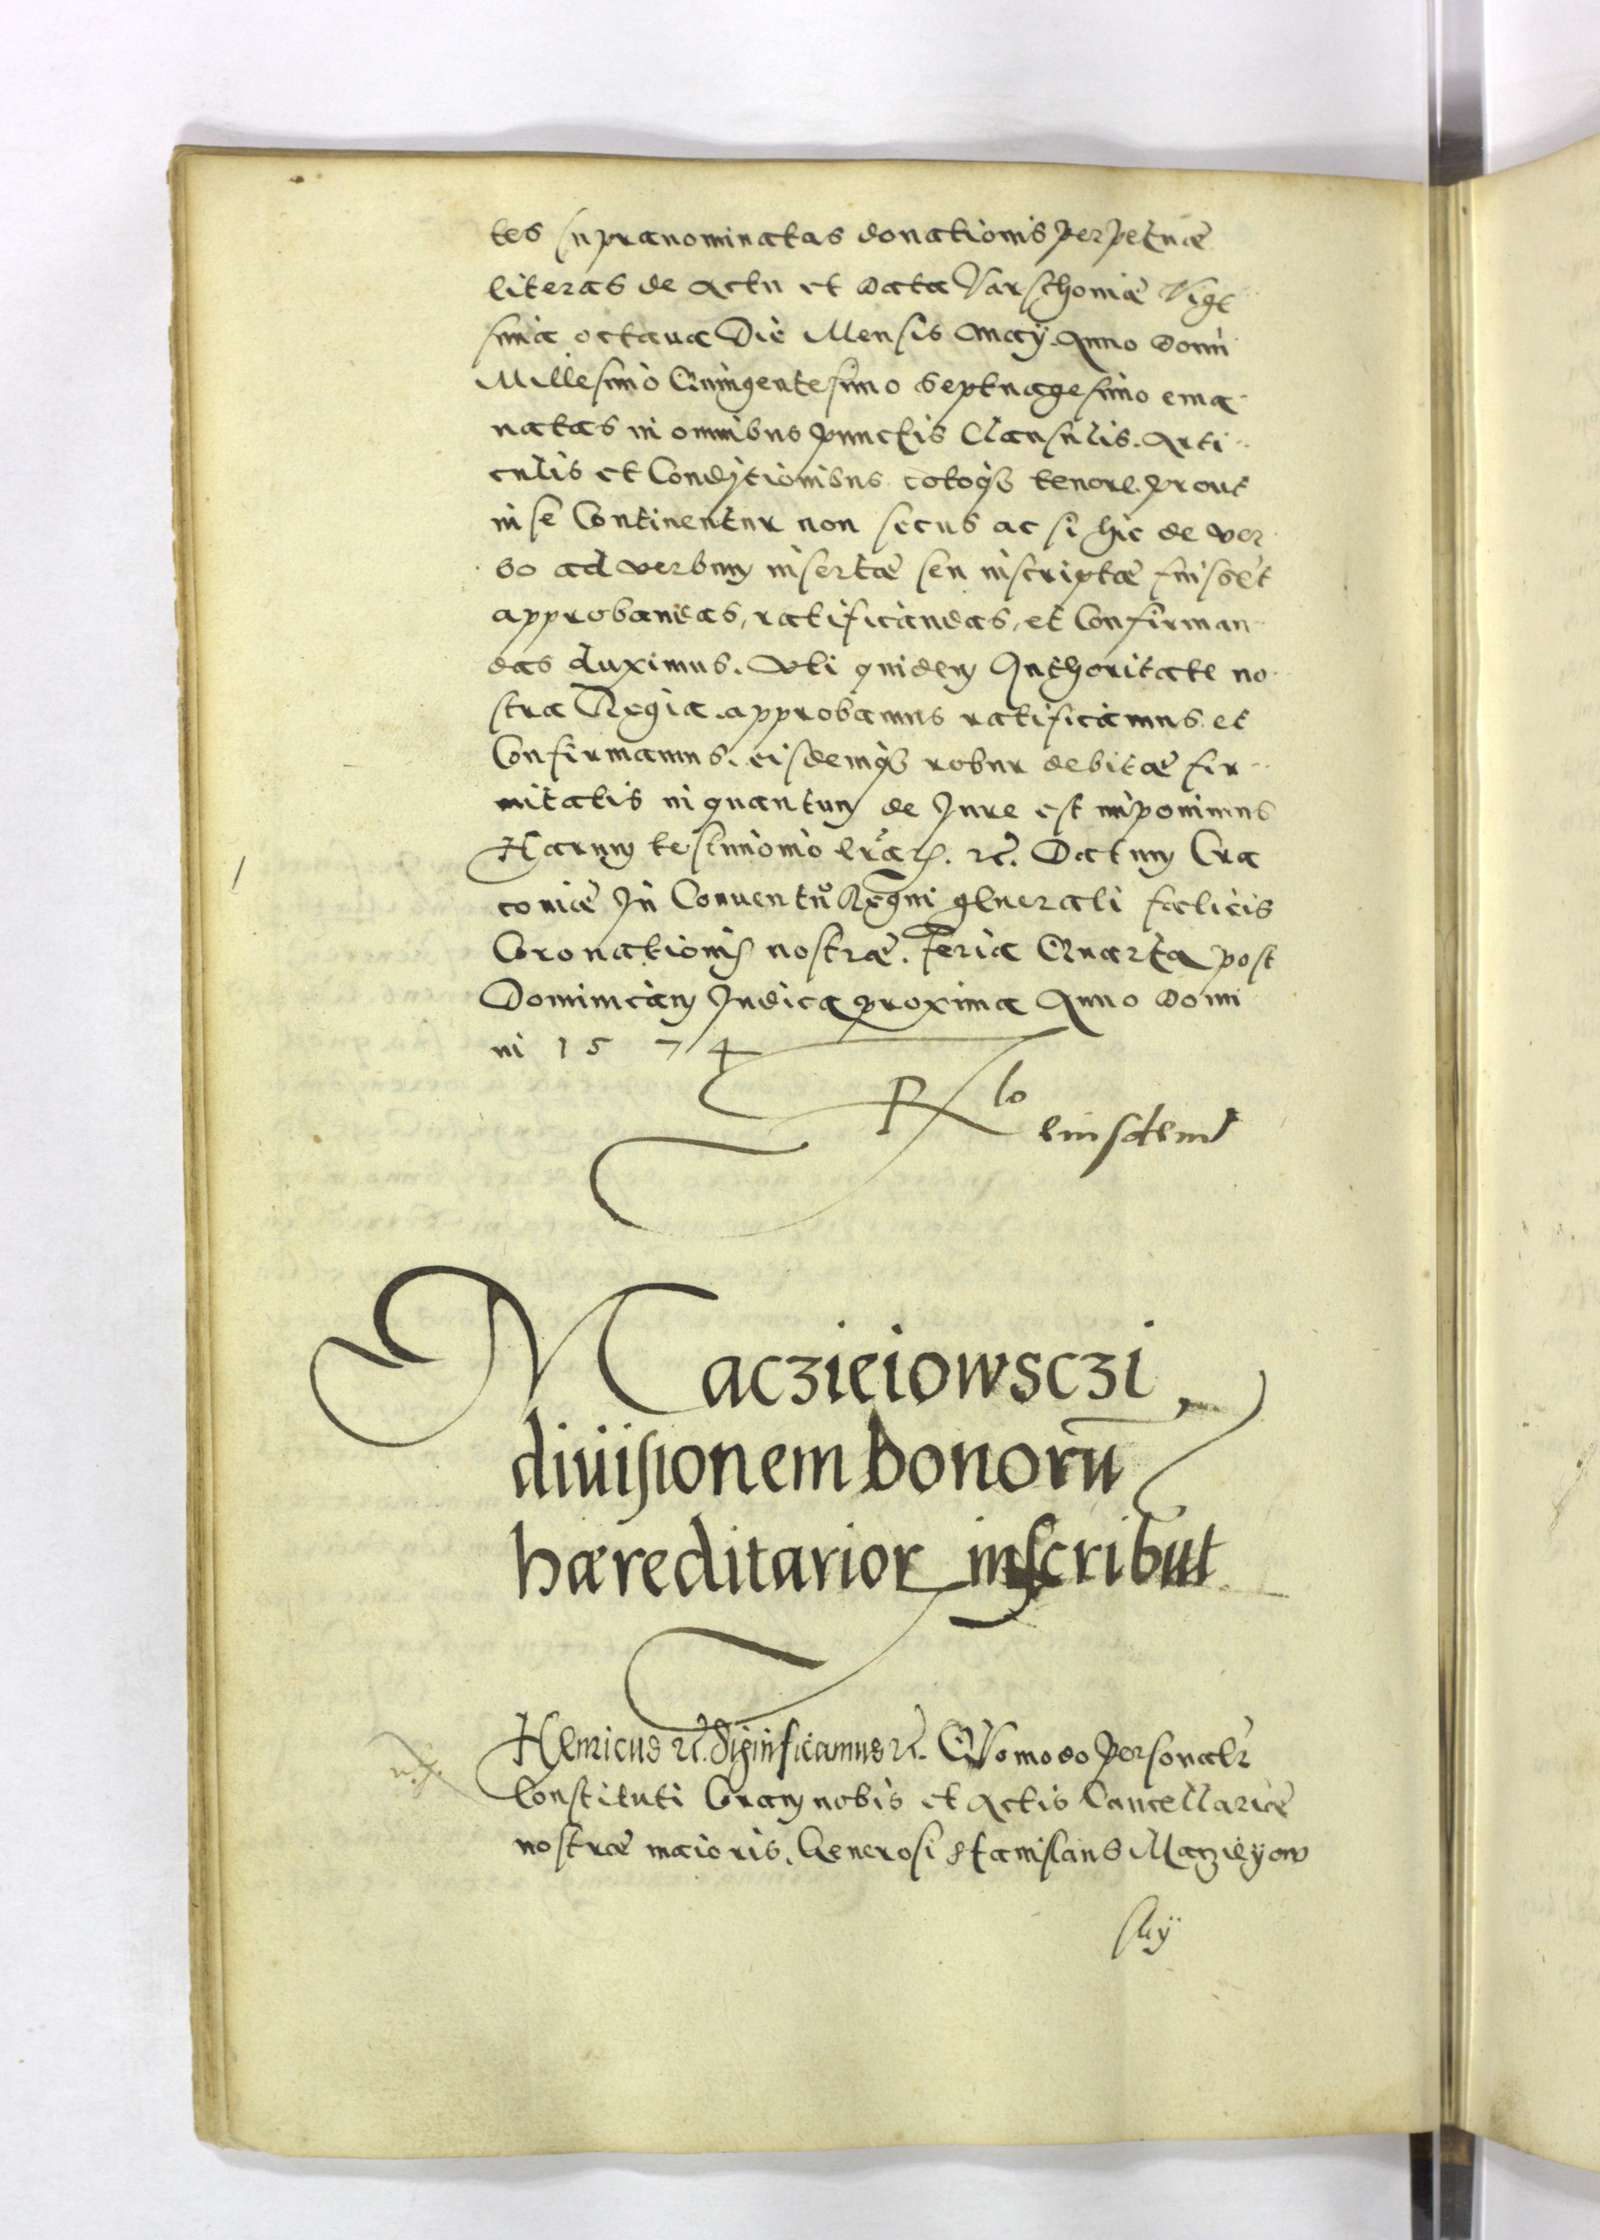 tes supranominatas donationis perpetuæ
literas de actu et data Varschoniæ Vige
sima octaua Die Mensis Maÿ. Anno Domi
Millesimo Quingentesimo septuagesimo ema
natas in omnibus punctis Clausulis. Arti
culis et Conditionibus totoq3 tenore prout
in se Continentur non secus ac si hic de ver
bo ad verbum insertæ seu inscriptæ fuissēt
approbandas, ratificandas, et Confirman
das duximus. Vti quidem Authoritate no
stra Regia approbamus ratificamus et
Confirmamus. eisdemq3 robur debitæ fir
mitatis in quantum de Iure est imponimus
Harum testimonio lrārū. etc. Datum Cra
coniæ In Conuentu Regni generali fælicis
Coronationis nostræ. feria Quarta post
Dominicam Iudica proxima Anno Domi
ni 1574
Rlo
eiusdem
Maczieiowsczi
diuisionem bonorū
hæreditarior inscribūt
Henricus etc. Significamus etc. Quomodo personalr
Constituti Coram nobis et Actis Cancellariæ
nostræ maioris. Generosi Stanislaus Maczieÿow
skÿ